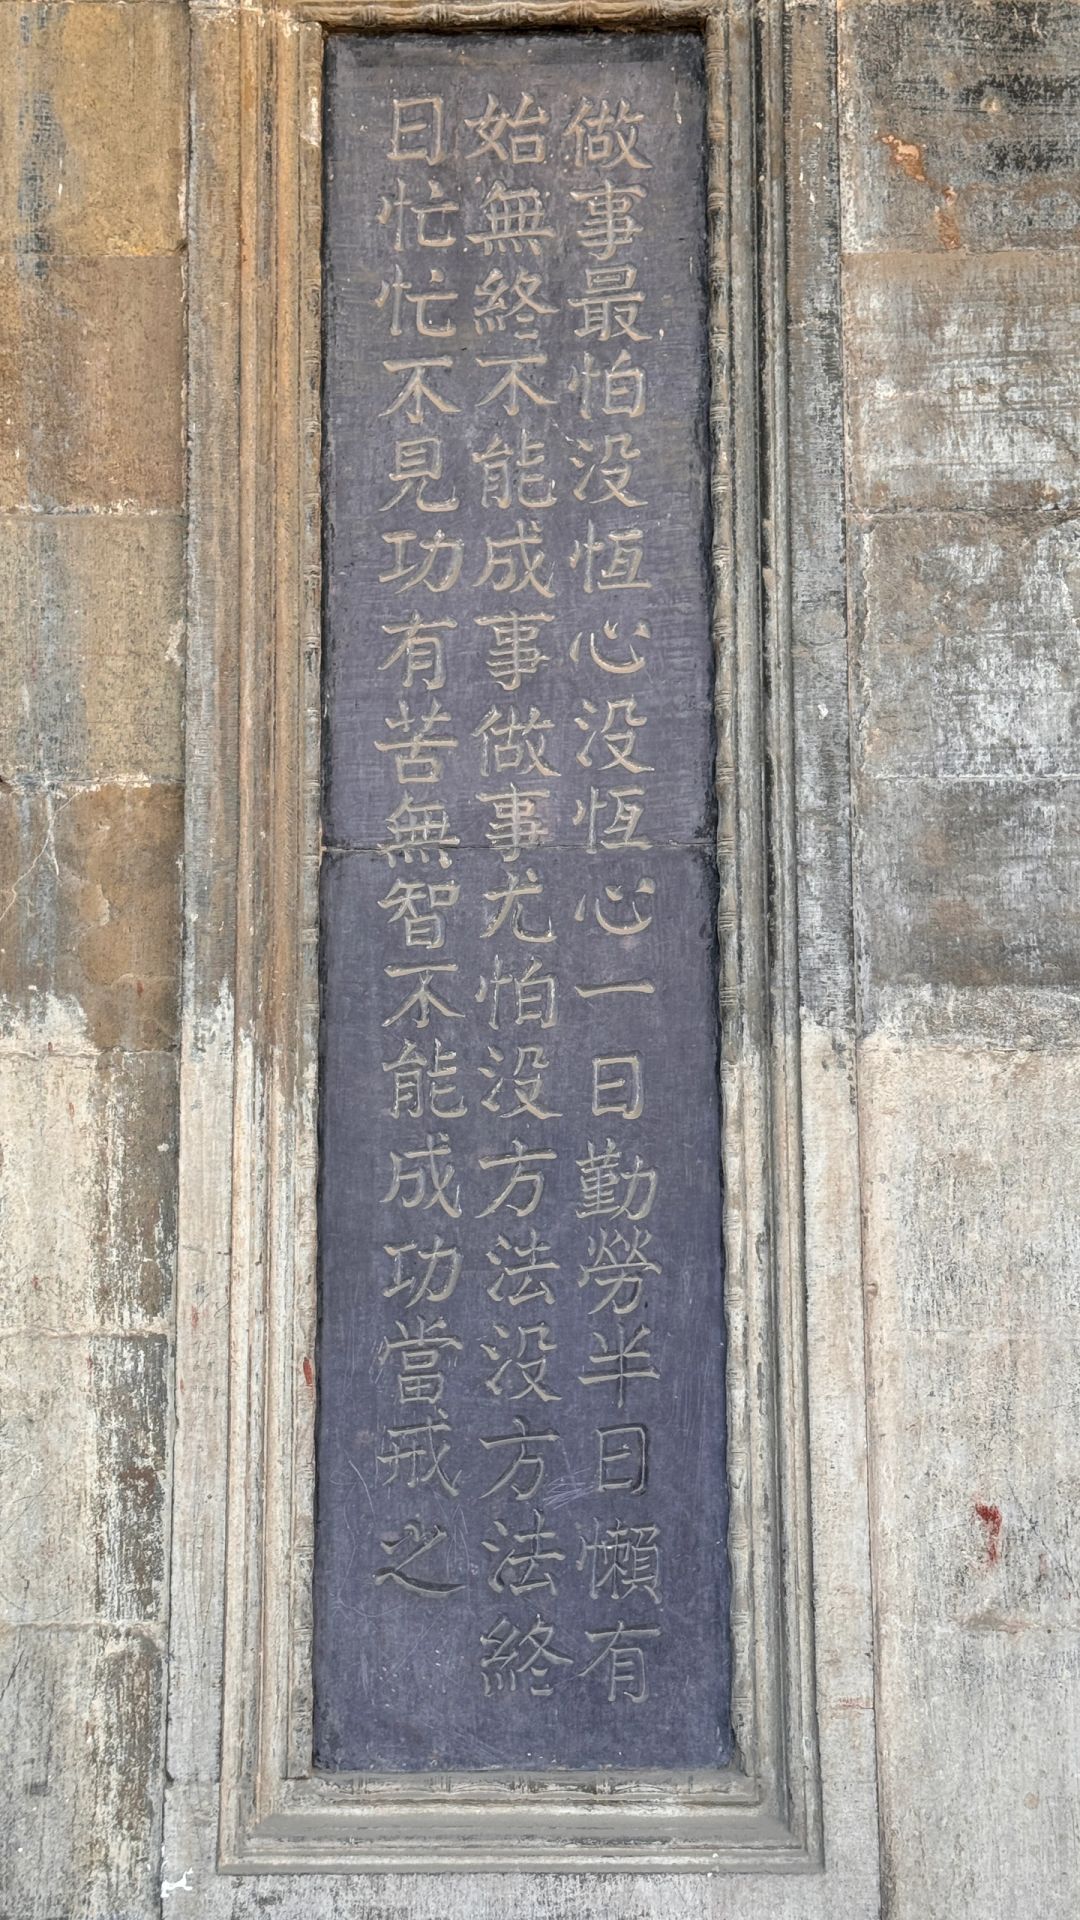 做事最怕没恆心没恆心一日勤勞半日懶有
始無終不能成事做事尤怕没方法没方法終
日忙忙不見功有苦無智不能成功當戒之